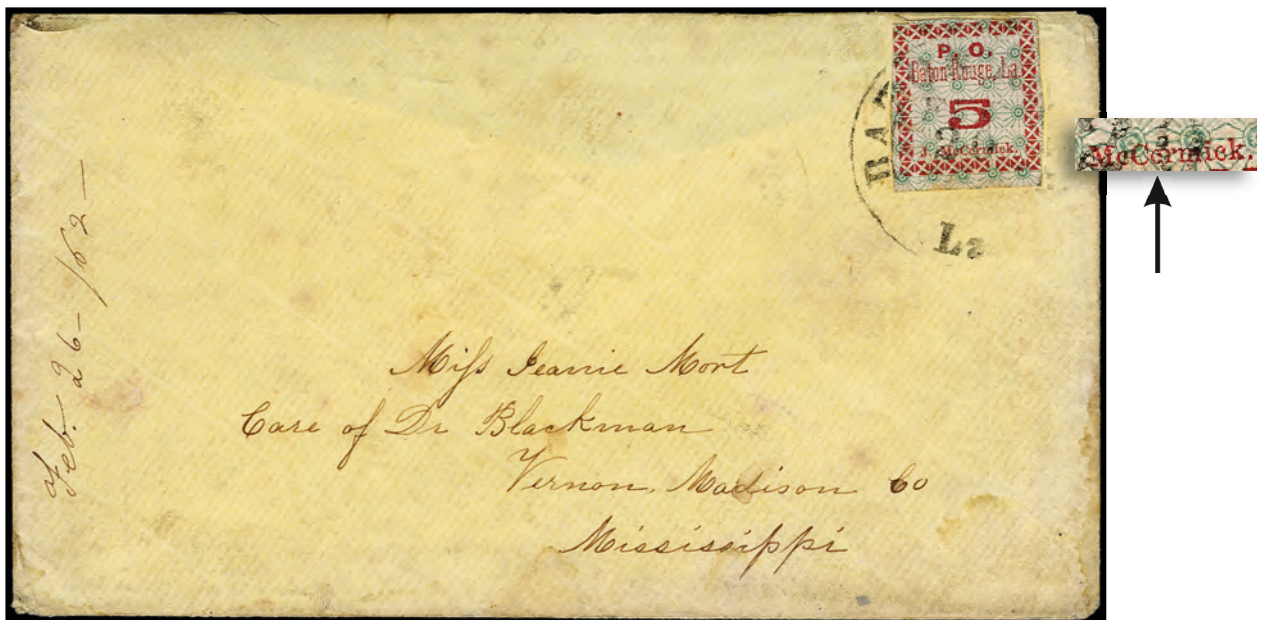 P. O.
Baton Rouge, La.
5
J. McCcrmick.
BAT
La
McCcrmick.
Feb. 26 - /62 -
Miss Jeanie Mort
Care of Dr Blackman
Vernon, Madison Co
Mississippi